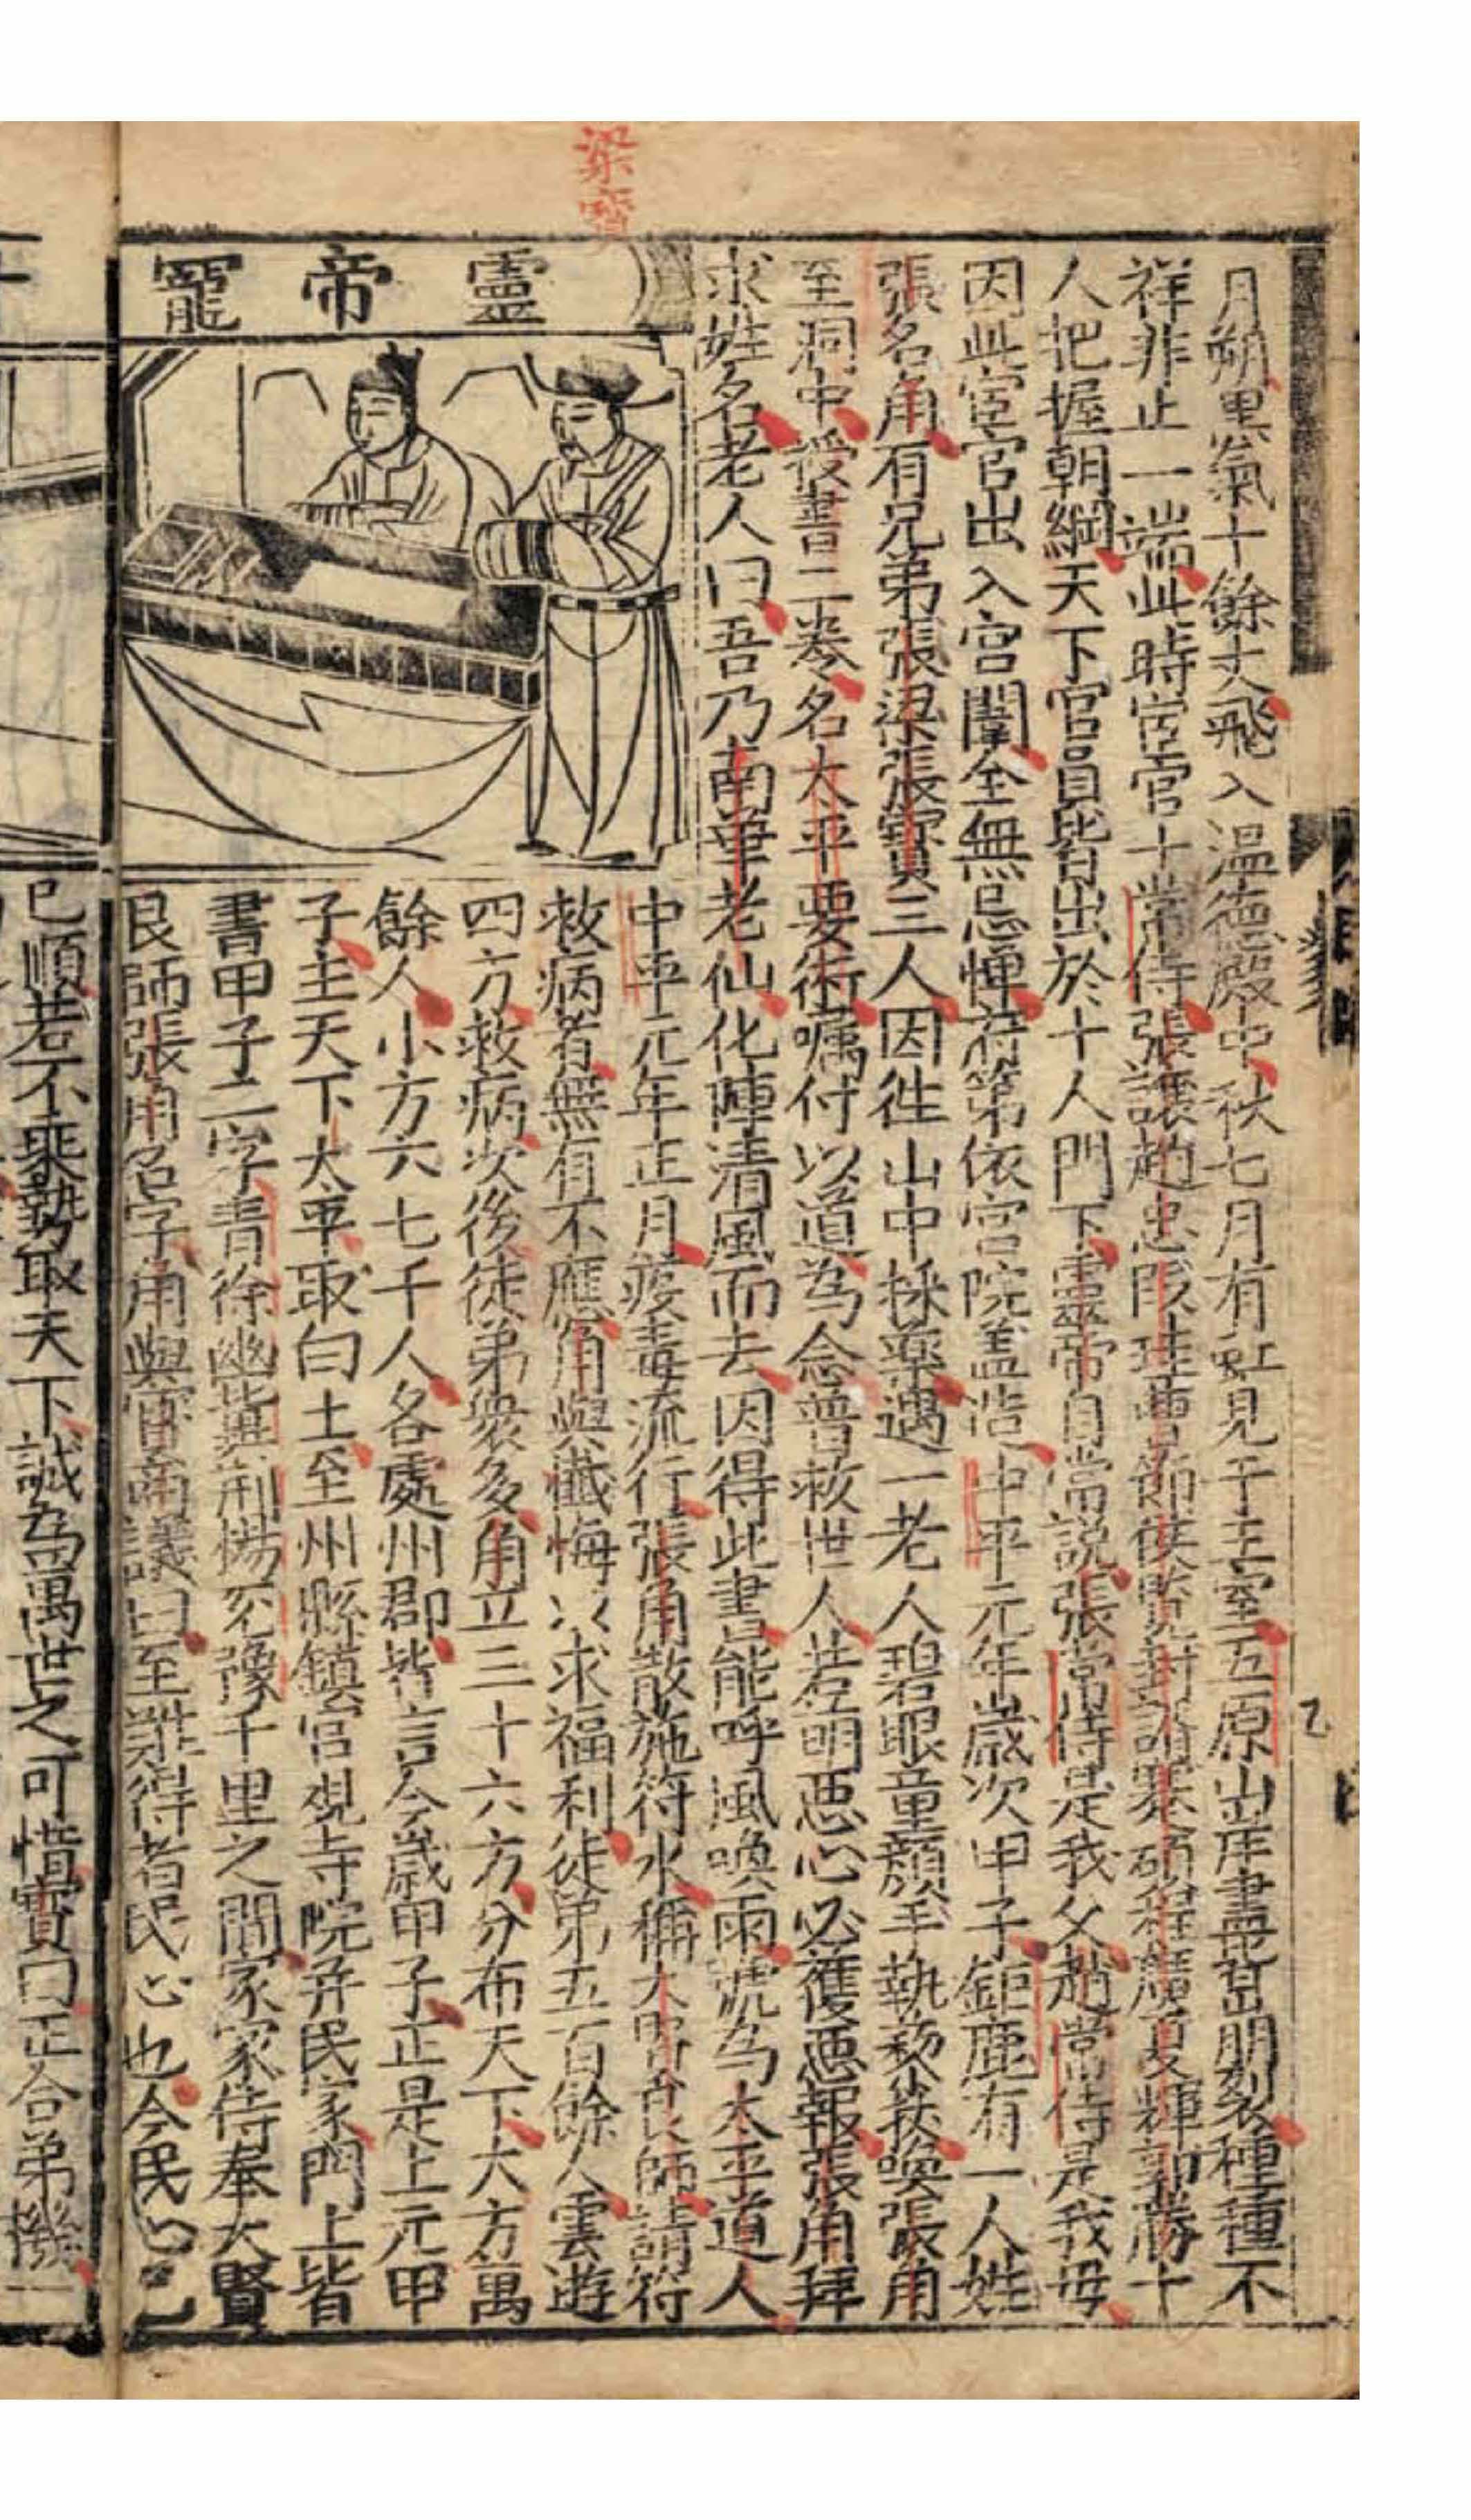 梁寳
月朔黒氣十餘丈飛入温德殿中秋七月有虹見于玉室五原山岸盡皆崩裂種種不
祥非止一端此時宦官十常侍張讓趙忠段珪曹節侯覽封諝蹇碩程曠夏輝郭勝十
人把握朝綱天下官員皆出於十人門下靈帝自嘗說張常侍是我父趙常侍是我母
因此宦官出入宮闈全無忌憚府第依宮院盖造中平元年歲次甲子鉅鹿有一人姓
張名角有兄弟張梁張寳三人因徃山中採藥遇一老人碧眼童顔手執藜杖喚張角
至洞中授書三卷名太平要術囑付以道為念普救世人若萌惡心必獲惡報張角拜
求姓名老人曰吾乃南華老仙化陣清風而去因得此書能呼風喚雨號為太平道人
靈帝寵
中平元年正月疫毒流行張角散施符水稱大賢良師請符
救病者無有不應角與懺悔以求福利徒弟五百餘人雲遊
四方救病次後徒弟衆多角立三十六方分布天下大方萬
餘人小方六七千人各處州郡皆言今歲甲子正是上元甲
子主天下太平取白土至州縣鎮宮覌寺院并民家門上皆
書甲子二字青徐幽冀荆楊兖豫千里之間家家侍奉大賢
良師張角名字角與寳商議曰至難得者民心也今民心已
已順若不乘勢取天下誠為萬世之可惜寳曰正合弟機一